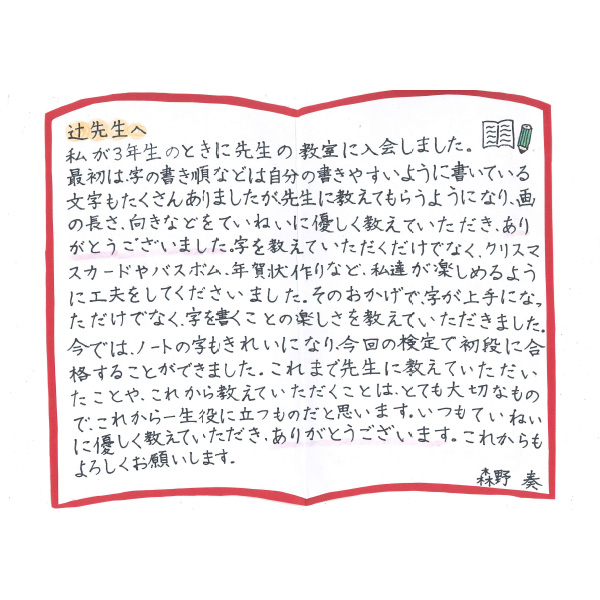 辻先生へ
私が3年生のときに先生の教室に入会しました。
最初は字の書き順などは自分の書きやすいように書いている
文字もたくさんありましたが、先生に教えてもらうようになり、画
の長さ、向きなどをていねいに優しく教えていただき、あり
がとうございました。字を教えていただくだけでなく、クリスマ
スカードやバスボム、年賀状作りなど、私達が楽しめるよう
に工夫をしてくださいました。そのおかげで、字が上手になっ
ただけでなく、字を書くことの楽しさを教えていただきました。
今では、ノートの字もきれいになり、今回の検定で初段に合
格することができました。これまで先生に教えていただい
たことや、これから教えていただくことは、とても大切なもの
で、これから一生役に立つものだと思います。いつもていねい
に優しく教えていただき、ありがとうございます。これからも
よろしくお願いします。
森野 奏